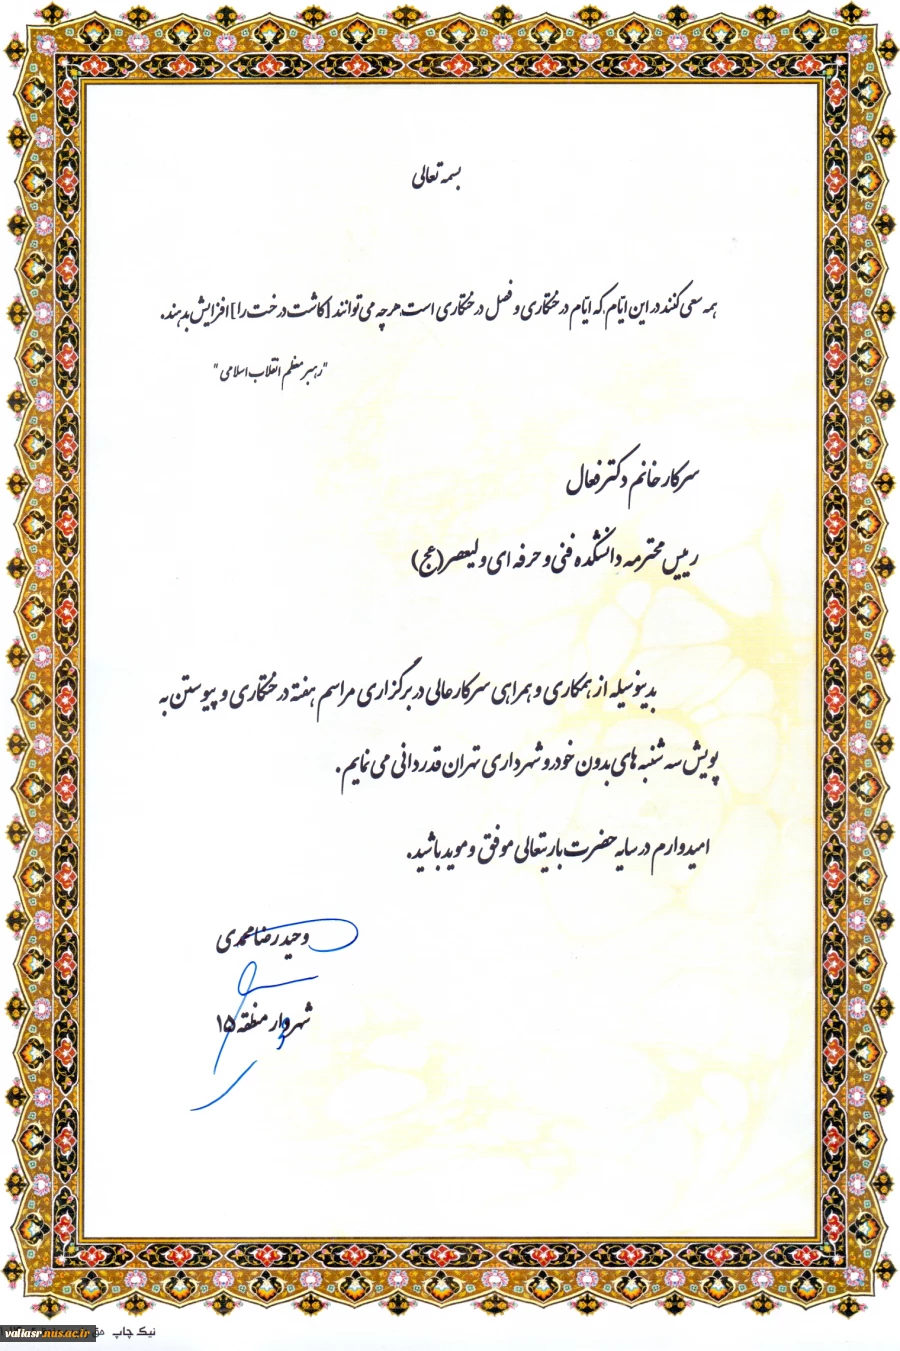 بسمه تعالی
همه سعی کنند در این ایّام که ایّام درختکاری و فصل درختکاری است، هر چه می توانند [کاشت درخت را] افزایش بدهند.
"رهبر معظم انقلاب اسلامی"
سرکار خانم دکتر فعال
رییس محترمه دانشکده فنی و حرفه ای ولیعصر(عج)
بدینوسیله از همکاری و همراهی سرکارعالی در برگزاری مراسم هفته درختکاری و پیوستن به
پویش سه شنبه های بدون خودرو شهرداری تهران قدردانی می نمایم.
امیدوارم در سایه حضرت باریتعالی موفق و موید باشید.
وحید رضا محمدی
شهردار منطقه ۱۵
نیک چاپ
valiasr.nus.ac.ir